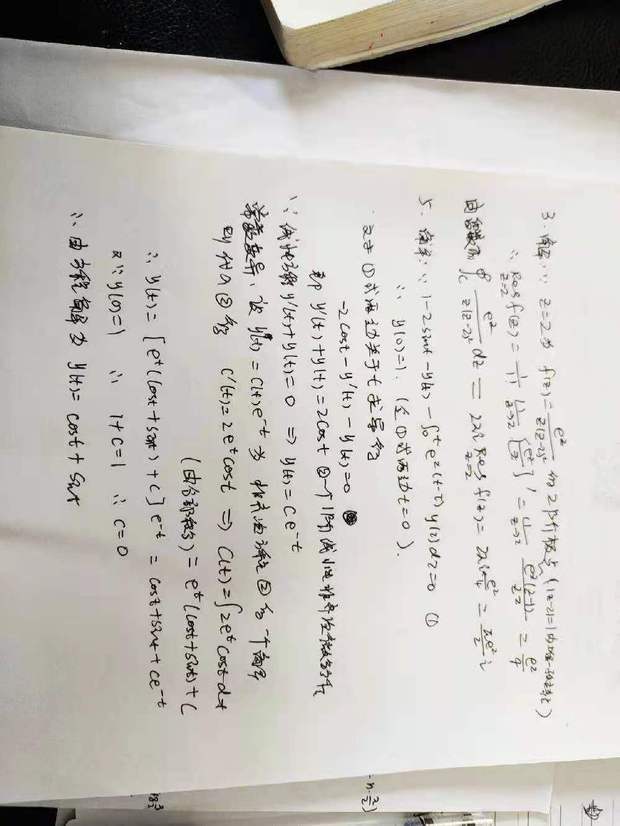 3. 解: ∵ z=2为 f(z)=e^z/z(z-2)² 的2阶极点 (|z-2|=1
∴ Res_{z=2} f(z) = 1/1! lim_{z→2} (e^z/z)' = lim_{z→2} e^z(z-1)/z² = e²/4
由留数 ∮_C e^z/z(z-2)² dz = 2πi Res_{z=2} f(z) = 2πi·e²/4 = πe²/2 i
5. 解: ∵ 1-2sint-y(t)-∫₀ᵗ e^{2(t-τ)} y(τ)dτ=0 ①
∴ y(0)=1. (在①式两边t=0).
又在①式两边关于t求导得
-2cost-y'(t)-y(t)=0
即 y'(t)+y(t)=2cost ② 一个1阶线性非齐次
∵ y'(t)+y(t)=0 ⇒ y(t)=Ce^{-t}
设 y(t)=C(t)e^{-t} 为 ② 的一个解
则代入②得 C'(t)=2e^t cost ⇒ C(t)=∫2e^t cost dt
(由分部积分) = e^t(cost+sint)+C
∴ y(t)=[e^t(cost+sint)+C]e^{-t}=cost+sint+ce^{-t}
又∵ y(0)=1 ∴ 1+c=1 ∴ c=0
∴ 方程解为 y(t)=cost+sint